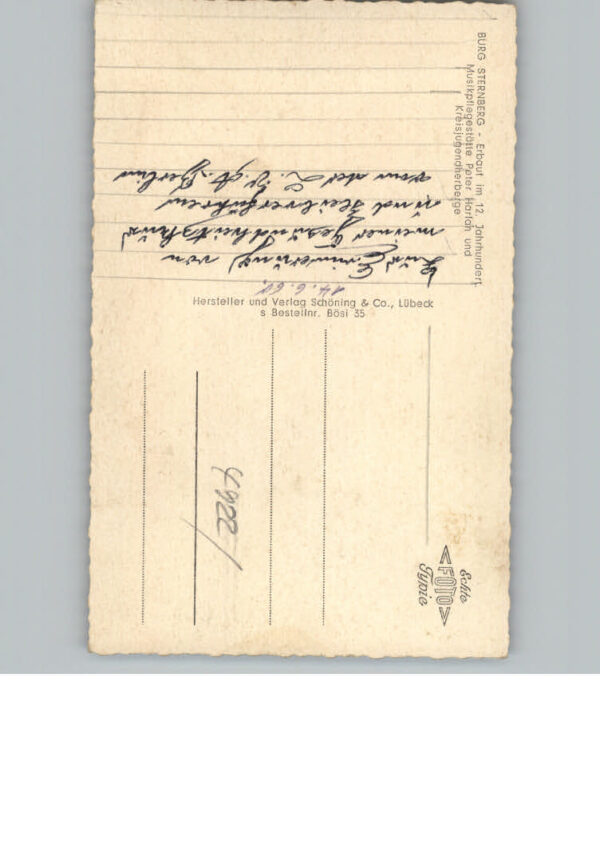 BURG STERNBERG - Erbaut im 12. Jahrhundert
Musikpflegestätte Peter Harlan und
Kreisjugendherberge
Zur Erinnerung von
meiner Gesundheitskur
und Heilverfahren
von der L.V.A. Berlin
Hersteller und Verlag Schöning & Co., Lübeck
s Bestellnr. Bösi 35
Echte
FOTO
Typie
4922